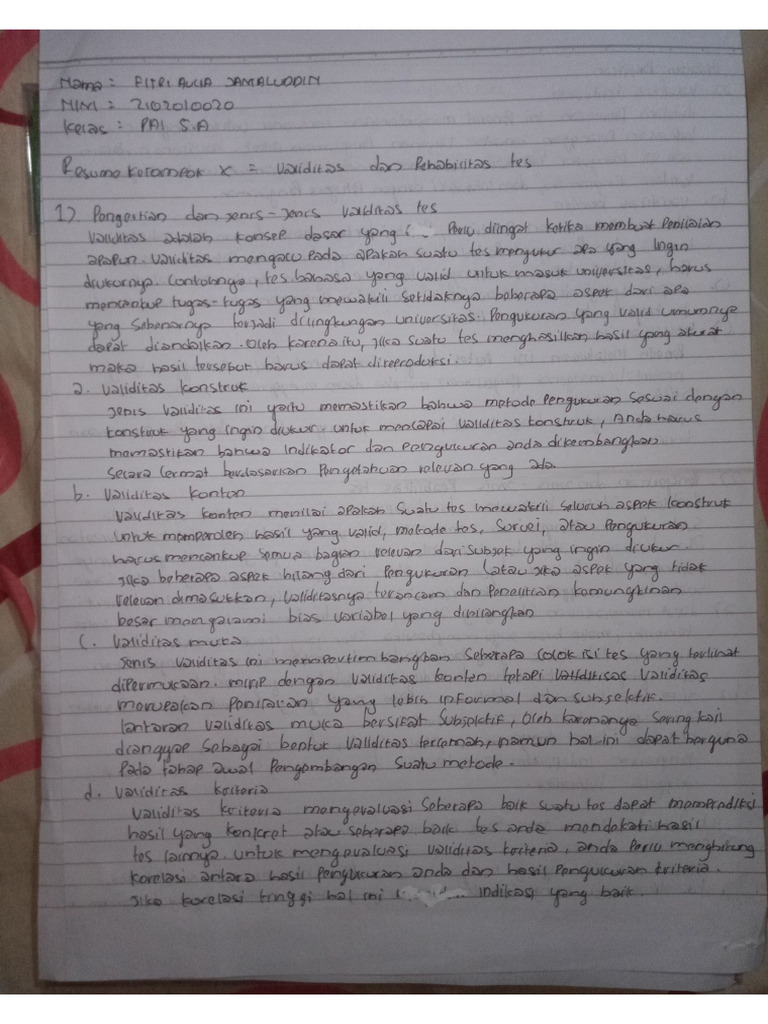 Nama : FITRI AULIA JAMALUDDIN
NIM : 2102010020
Kelas : PAI 5.A
Resume Kelompok X = Validitas dan Rehabilitas tes
1). Pengertian dan jenis-jenis validitas tes
Validitas adalah konsep dasar yang Perlu diingat ketika membuat Penilaian
apapun. Validitas mengacu Pada apakah suatu tes mengukur apa yang ingin
diukurnya. Contohnya, tes bahasa yang valid untuk masuk universitas, harus
mencankup tugas-tugas yang mewakili setidaknya beberapa aspek dari apa
yang sebenarnya terjadi dilingkungan universitas. Pengukuran yang valid umumnya
dapat diandalkan. Oleh karena itu, jika suatu tes menghasilkan hasil yang akurat
maka hasil tersebut harus dapat direproduksi.
a. Validitas Konstruk
Jenis validitas ini yaitu memastikan bahwa metode Pengukuran sesuai dengan
konstruk yang ingin diukur. untuk mencapai validitas konstruk, Anda harus
memastikan bahwa indikator dan Pengukuran anda dikembangkan
secara cermat berdasarkan Pengetahuan relevan yang ada.
b. Validitas Konten
Validitas konten menilai apakah suatu tes mewakili seluruh aspek konstruk
untuk memperoleh hasil yang valid, metode tes, survei, atau Pengukuran
harus mencankup semua bagian relevan dari subjek yang ingin diukur.
Jika beberapa aspek hilang dari Pengukuran (atau jika aspek yang tidak
relevan dimasukkan, validitasnya terancam dan Penelitian kemungkinan
besar mengalami bias variabel yang dihilangkan
C. Validitas muka
Jenis validitas ini mempertimbangkan seberapa cocok isi tes yang terlihat
dipermukaan. mirip dengan validitas konten tetapi validitas
merupakan Penilaian yang lebih informal dan subjektif.
lantaran validitas muka bersifat subjektif, Oleh karenanya sering kali
dianggap sebagai bentuk validitas terlemah, namun hal ini dapat berguna
Pada tahap awal Pengembangan suatu metode.
d. Validitas kriteria
Validitas kriteria mengevaluasi seberapa baik suatu tes dapat memprediksi
hasil yang konkret atau seberapa baik tes anda mendekati hasil
tes lainnya. untuk mengevaluasi validitas kriteria, anda Perlu menghitung
korelasi antara hasil Pengukuran anda dan hasil Pengukuran kriteria.
Jika korelasi tinggi hal ini indikasi yang baik.